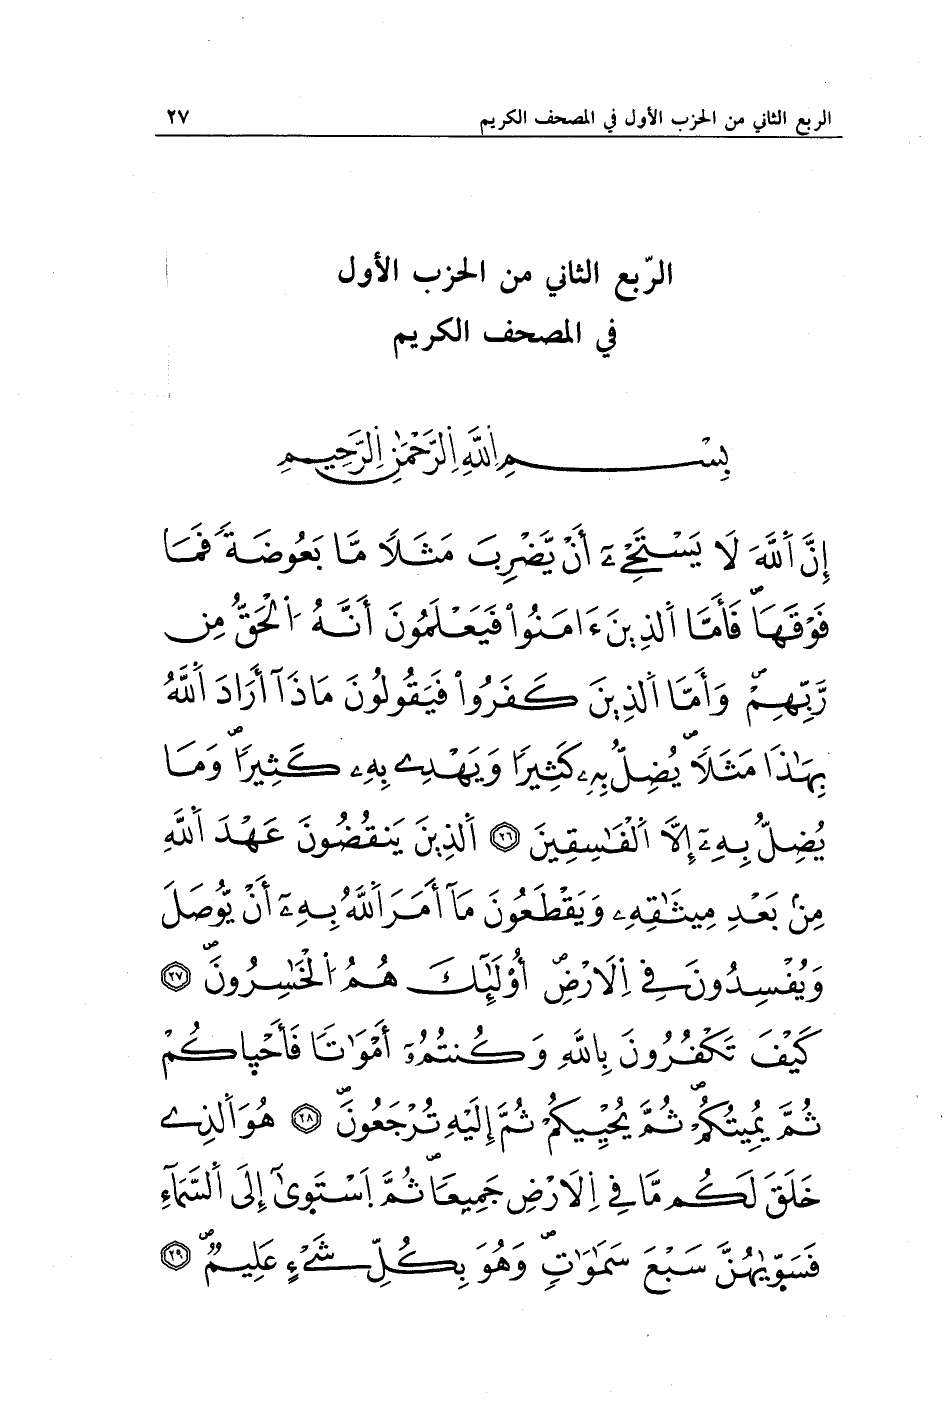 الربع الثاني من الحزب الأول في المصحف الكريم ٢٧
الرّبع الثاني من الحزب الأول
في المصحف الكريم
بِسْمِ اِللَّهِ اِلرَّحْمَٰنِ اِلرَّحِيمِ
إِنَّ اَللَّهَ لَا يَسْتَحْيِۦٓ أَنْ يَّضْرِبَ مَثَلاً مَّا بَعُوضَةً فَمَا
فَوْقَهَاۖ فَأَمَّا اَلذِينَ ءَامَنُواْ فَيَعْلَمُونَ أَنَّهُ اُلْحَقُّ مِن
رَّبِّهِمْۖ وَأَمَّا اَلذِينَ كَفَرُواْ فَيَقُولُونَ مَاذَآ أَرَادَ اَللَّهُ
بِهَٰذَا مَثَلاًۖ يُضِلُّ بِهِۦ كَثِيراً وَيَهْدِے بِهِۦ كَثِيراًۖ وَمَا
يُضِلُّ بِهِۦٓ إِلَّا اَلْفَٰسِقِينَ ٢٦ اَلذِينَ يَنقُضُونَ عَهْدَ اَللَّهِ
مِنۢ بَعْدِ مِيثَٰقِهِۦ وَيَقْطَعُونَ مَآ أَمَرَ اَللَّهُ بِهِۦٓ أَنْ يُّوصَلَ
وَيُفْسِدُونَ فِي اِلَارْضِۖ أُوْلَٰٓئِكَ هُمُ اُلْخَٰسِرُونَۖ ٢٧
كَيْفَ تَكْفُرُونَ بِاللَّهِ وَكُنتُمُۥٓ أَمْوَٰتاً فَأَحْيٰاكُمْ
ثُمَّ يُمِيتُكُمْۖ ثُمَّ يُحْيِيكُمْ ثُمَّ إِلَيْهِ تُرْجَعُونَۖ ٢٨ هُوَ اَلذِے
خَلَقَ لَكُم مَّا فِي اِلَارْضِ جَمِيعاًۖ ثُمَّ اَسْتَوىٰٓ إِلَى اَلسَّمَآءِ
فَسَوّىٰهُنَّ سَبْعَ سَمَٰوَٰتٍۖ وَهُوَ بِكُلِّ شَےْءٍ عَلِيمٌۖ ٢٩